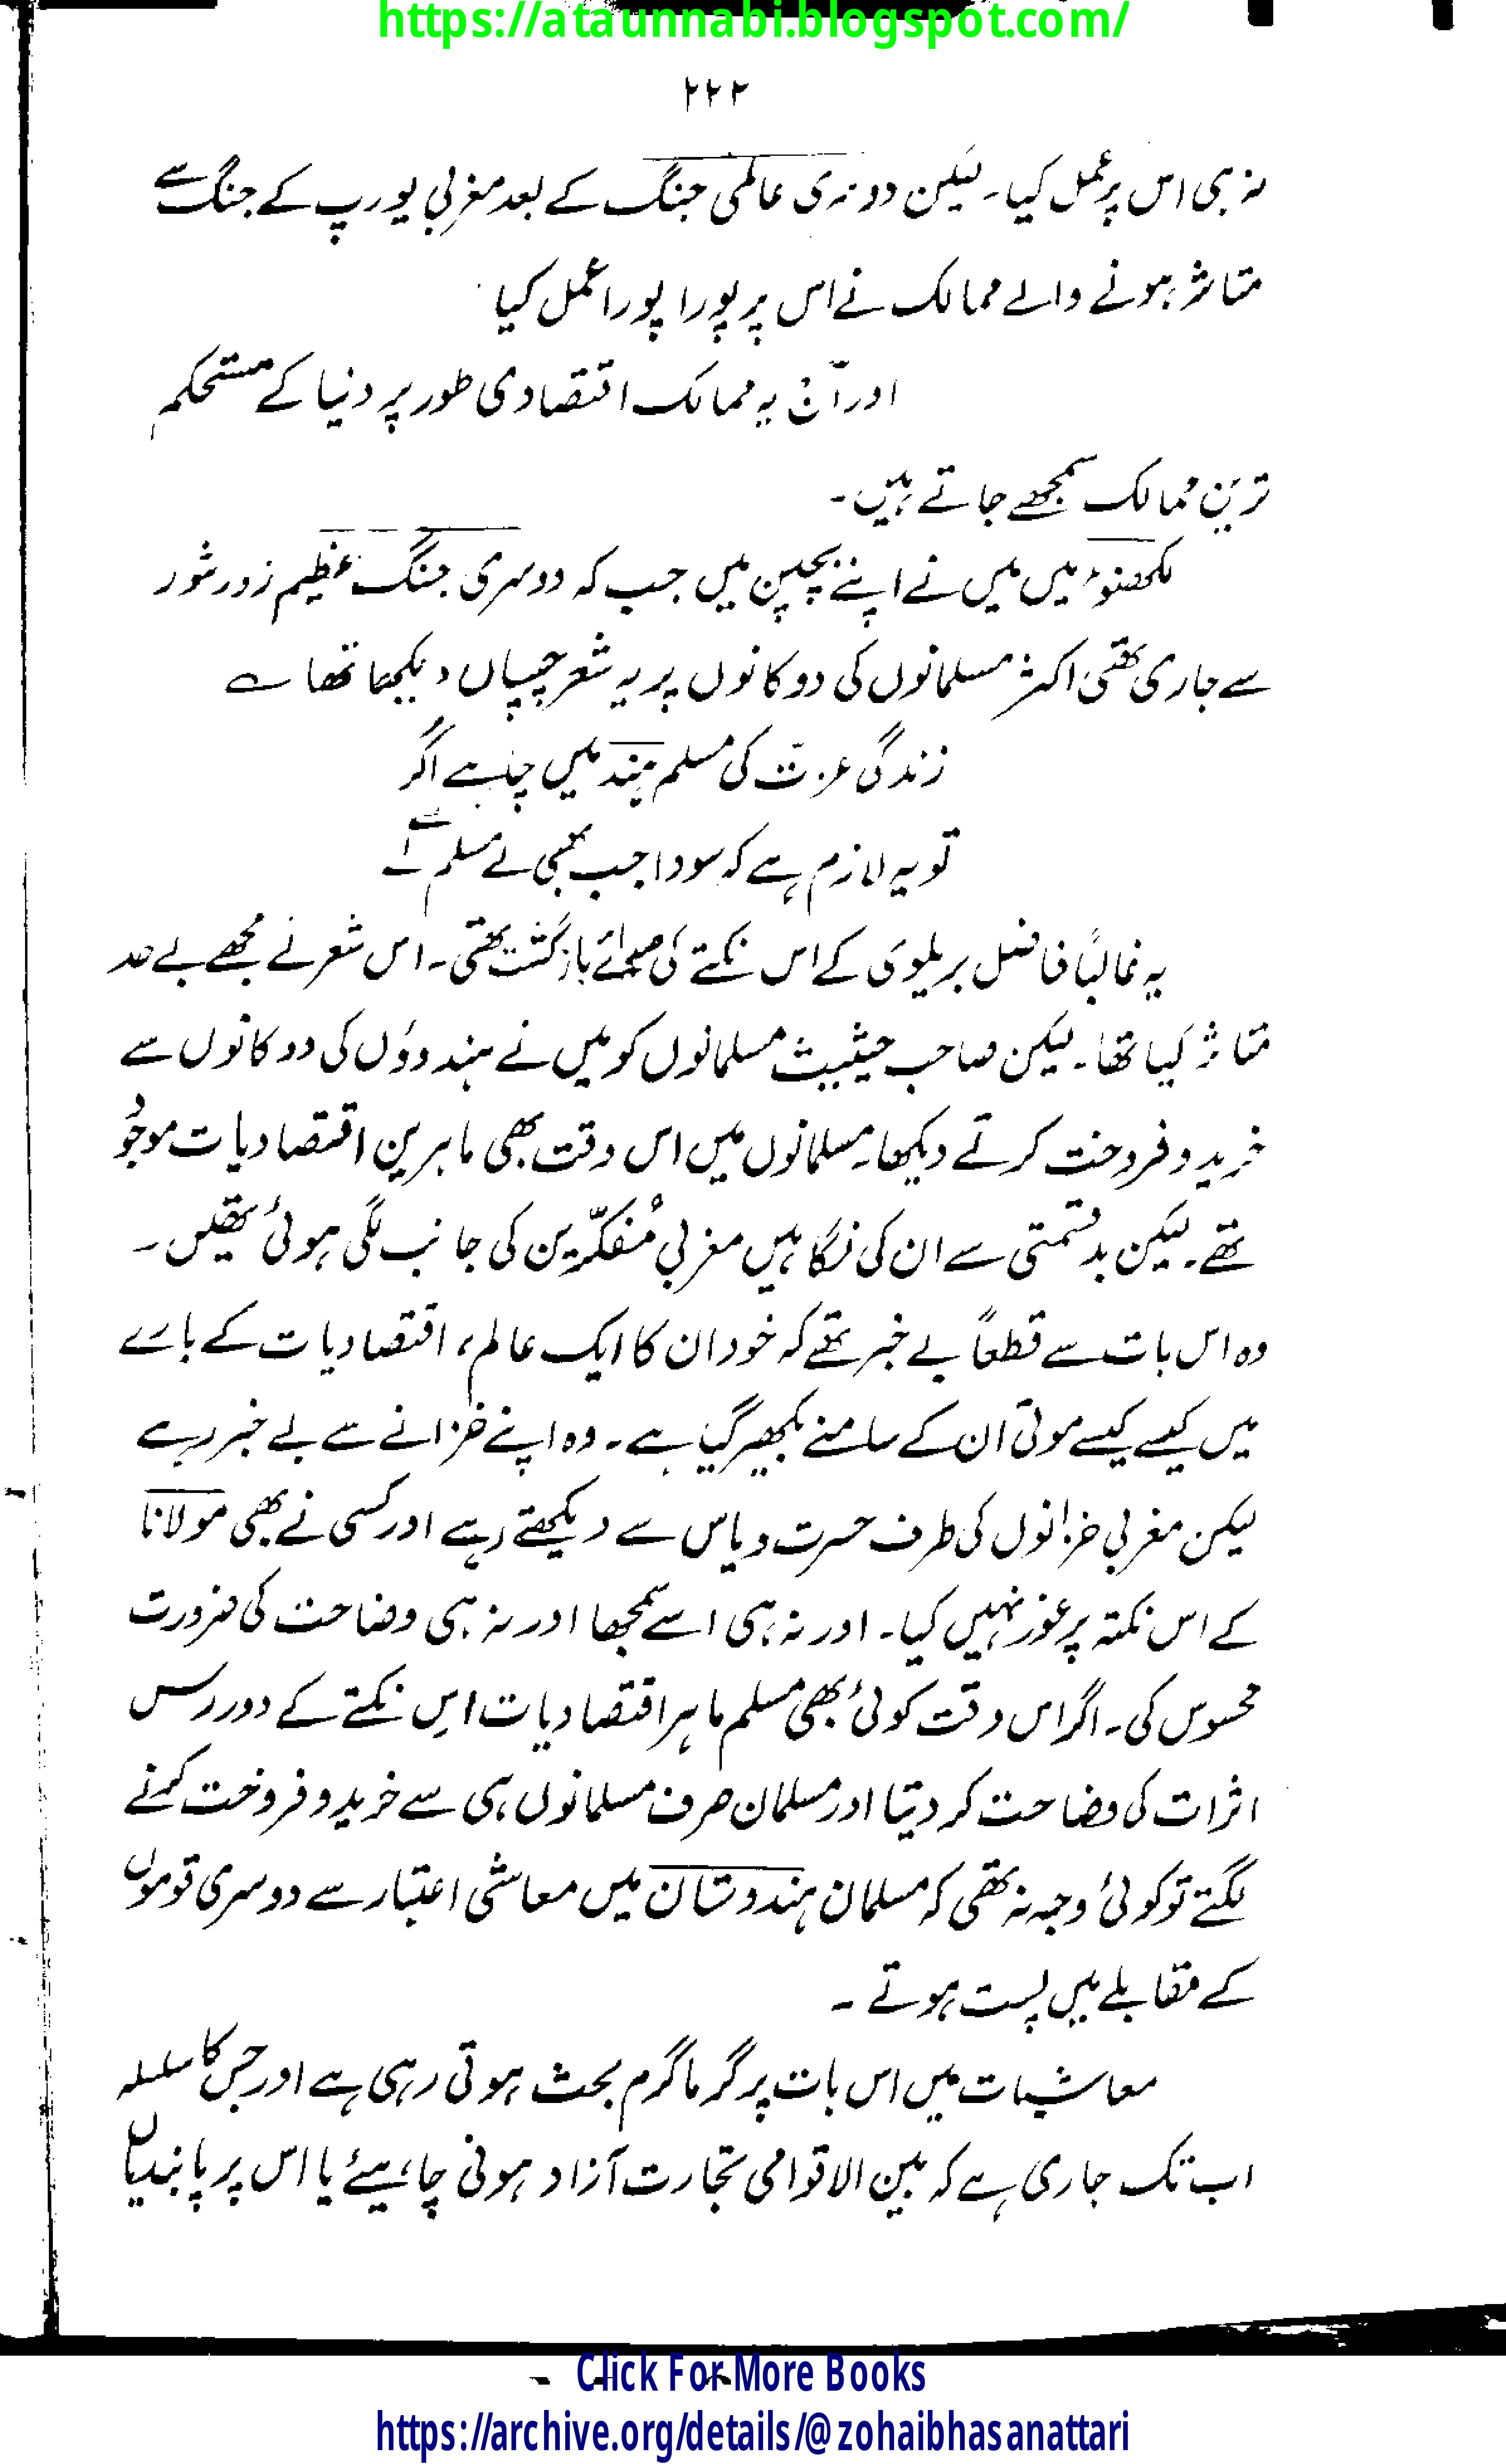 https://ataunnabi.blogspot.com/
۲۲۲
نہ ہی اس پر عمل کیا۔ لیکن دوسری عالمی جنگ کے بعد مغربی یورپ کے جنگ سے
متاثر ہونے والے ممالک نے اس پر پورا پورا عمل کیا
اور آج یہ ممالک اقتصادی طور پر دنیا کے مستحکم
ترین ممالک سمجھے جاتے ہیں۔
لکھنؤ میں میں نے اپنے بچپن میں جب کہ دوسری جنگ عظیم زور شور
سے جاری تھی اکثر مسلمانوں کی دوکانوں پر یہ شعر چسپاں دیکھا تھا ؎
زندگی عزّت کی مسلم ہند میں چاہے اگر
تو یہ لازم ہے کہ سودا جب بھی لے مسلم سے لے
یہ غالباً فاضل بریلوی کے اس نکتے کی صدائے بازگشت تھی۔ اس شعر نے مجھے بے حد
متاثر کیا تھا۔ لیکن صاحب حیثیت مسلمانوں کو میں نے ہندوؤں کی دوکانوں سے
خرید و فروخت کرتے دیکھا۔ مسلمانوں میں اس وقت بھی ماہرین اقتصادیات موجود
تھے۔ لیکن بدقسمتی سے ان کی نگاہیں مغربی مُفکّرین کی جانب لگی ہوئی تھیں۔
وہ اس بات سے قطعاً بے خبر تھے کہ خود ان کا ایک عالم، اقتصادیات کے بارے
میں کیسے کیسے موتی ان کے سامنے بکھیر گیا ہے۔ وہ اپنے خزانے سے بے خبر رہے
لیکن مغربی خزانوں کی طرف حسرت و یاس سے دیکھتے رہے اور کسی نے بھی مولانا
کے اس نکتہ پر غور نہیں کیا۔ اور نہ ہی اسے سمجھا اور نہ ہی وضاحت کی ضرورت
محسوس کی۔ اگر اس وقت کوئی بھی مسلم ماہر اقتصادیات اس نکتے کے دور رس
اثرات کی وضاحت کر دیتا اور مسلمان صرف مسلمانوں ہی سے خرید و فروخت کرنے
لگتے تو کوئی وجہ نہ تھی کہ مسلمان ہندوستان میں معاشی اعتبار سے دوسری قوموں
کے مقابلے میں پست ہوتے۔
معاشیات میں اس بات پر گرما گرم بحث ہوتی رہی ہے اور جس کا سلسلہ
اب تک جاری ہے کہ بین الاقوامی تجارت آزاد ہونی چاہیئے یا اس پر پابندیاں
Click For More Books
https://archive.org/details/@zohaibhasanattari